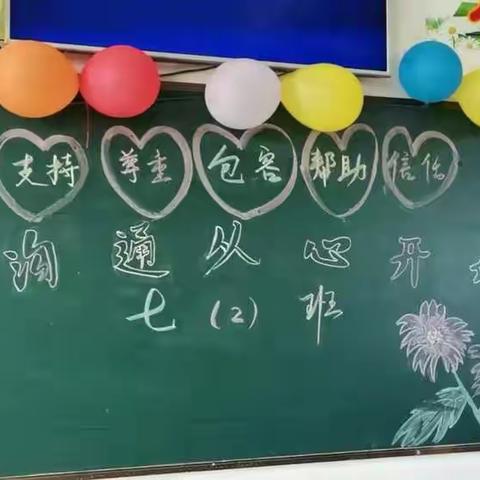 支持 尊重 包容 帮助 信任
沟通从心开
七(2)班